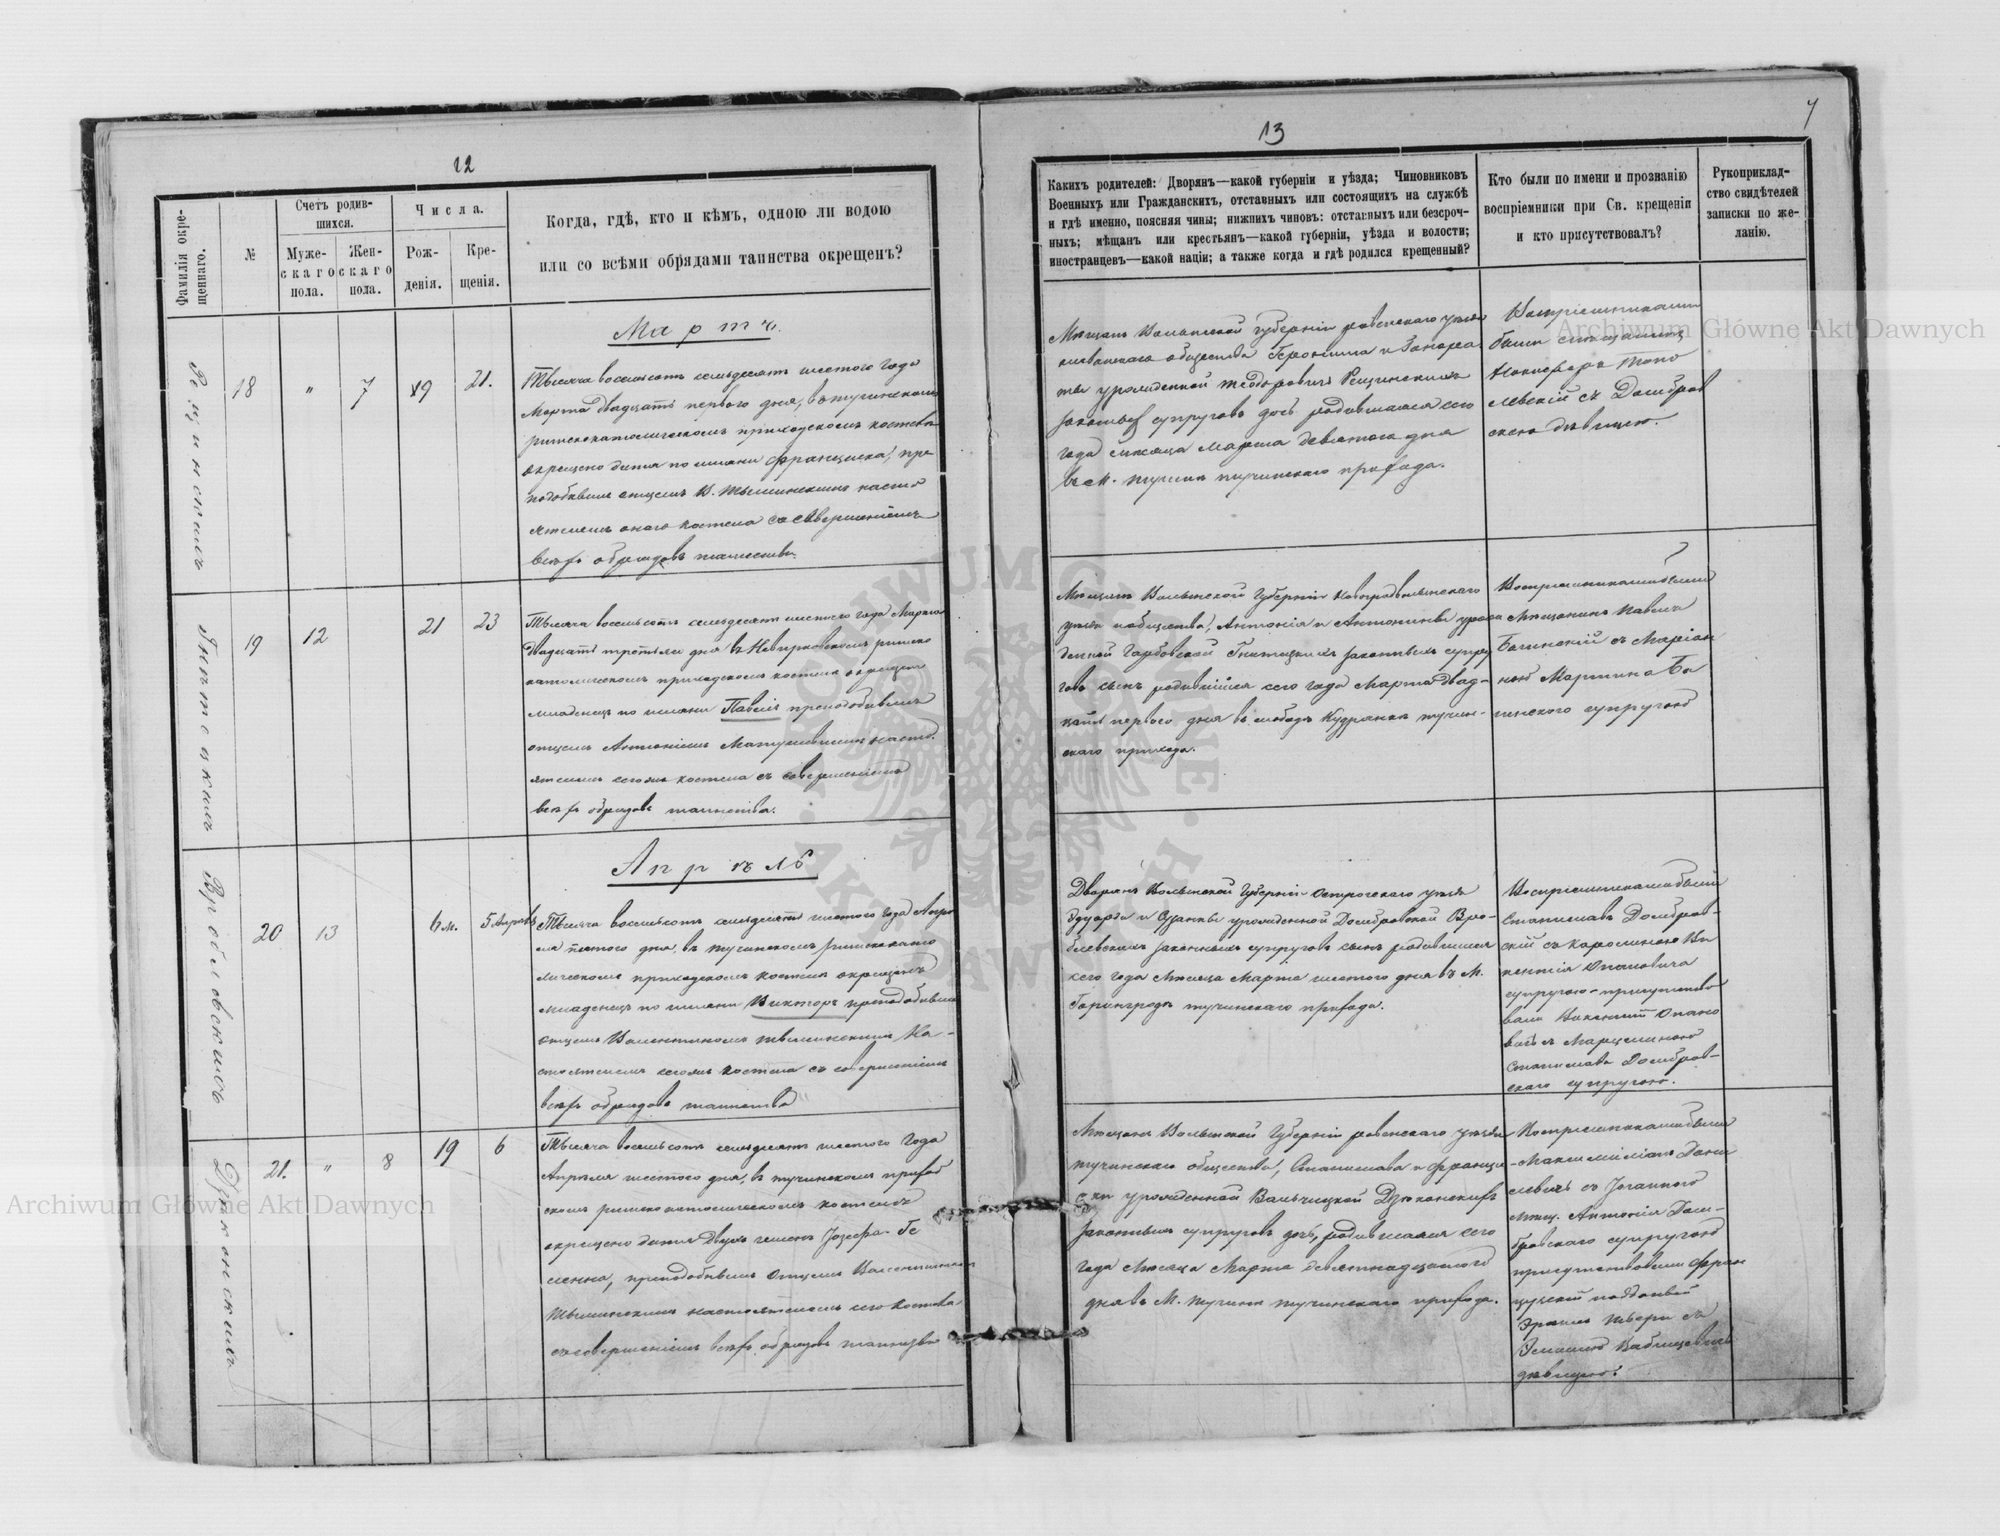 12
Фамилія окре-
щеннаго.
№
Счетъ родив-
шихся.
Муже-
скаго
пола.
Жен-
скаго
пола.
Числа.
Рож-
денія.
Кре-
щенія.
Когда, гдѣ, кто и кѣмъ, одною ли водою
или со всѣми обрядами таинства окрещенъ?
Мартъ.
18
"
7
19
21.
Тысяча восемьсотъ семьдесятъ шестого года
Марта двадцать перваго дня, въ тучинскомъ
римскокатолическомъ приходскомъ костелѣ
окрещено дитя по имени Франциска, пре-
подобнымъ отцемъ В. Тышинскимъ насто
ятелемъ оного костела со совершеніемъ
всѣхъ обрядовъ таинства.
19
12
21
23
Тысяча восемьсотъ семьдесятъ шестого года Марта
двадцать третьяго дня въ Невирковскомъ римско
католическомъ приходскомъ костелѣ окрещенъ
младенецъ по имени Павелъ преподобнымъ
отцемъ Антоніемъ насто
ятелемъ сегожъ костела съ совершеніемъ
всѣхъ обрядовъ таинства.
Врублевскихъ
Апрѣль
20
13
6 м.
5 Апрѣл
Тысяча восемьсотъ семьдесятъ шестого года Апрѣ
ля пятого дня, въ тучинскомъ римскокато
лическомъ приходскомъ костелѣ окрещенъ
младенецъ по имени Викторъ преподобнымъ
отцемъ Валентиномъ Тышинскимъ На-
стоятелемъ сегожъ костела съ совершеніемъ
всѣхъ обрядовъ таинства
21.
"
8
19
6
Тысяча восемьсотъ семьдесятъ шестого года
Апрѣля шестого дня, въ тучинскомъ приход
скомъ римскокатолическомъ костелѣ
окрещено дитя двухъ именъ Іозефа-Ге
лена, преподобнымъ Отцемъ Валентиномъ
Тышинскимъ настоятелемъ сего костела
съ совершеніемъ всѣхъ обрядовъ таинства
13
7
Какихъ родителей: Дворянъ—какой губерніи и уѣзда; Чиновниковъ
Военныхъ или Гражданскихъ, отставныхъ или состоящихъ на службѣ
и гдѣ именно, поясняя чины; нижнихъ чиновъ: отставныхъ или безсроч-
ныхъ; мѣщанъ или крестьянъ—какой губерніи, уѣзда и волости;
иностранцевъ—какой націи; а также когда и гдѣ родился крещенный?
Кто были по имени и прозванію
воспріемники при Св. крещеніи
и кто присутствовалъ?
Рукоприклад-
ство свидѣтелей
записки по же-
ланію.
Мѣщанъ Волынской губерніи ровенскаго уѣзда
общества Геронима и
урожденной Теодоровичъ Рещинскихъ
законныхъ супруговъ дочь родившаяся сего
года мѣсяца Марта девятого дня
въ М. тучинѣ тучинскаго прихода.
Воспріемниками
были
левскій съ Домбров
скою дѣвицею.
Мѣщанъ Волынской Губерніи Новоградволынскаго
уѣзда и общества, Антонія и Антонины урож
денной Гнитецкихъ законныхъ супру
говъ сынъ родившійся сего года Марта двад-
цать перваго дня въ слободѣ Кудрянкѣ тучин-
скаго прихода.
Воспріемниками были
Мѣщанинъ Павелъ
Багинскій съ Маріан
ною Мартина Ба
гинскаго супругою
Дворянъ Волынской Губерніи Острогскаго уѣзда
Эдуарда и Сузанны урожденной Домбровской Вро-
блевскихъ законныхъ супруговъ сынъ родившійся
сего года Мѣсяца Марта шестого дня въ М.
Горинградѣ тучинскаго прихода.
Воспріемниками были
Станиславъ Домбров-
скій съ Каролиною Ви
кентія Опановича
супругою-присутство
вали Викентій Опано
вичъ съ Марцелиною
Станислава Домбров-
скаго супругою.
Мѣщанъ Волынской Губерніи ровенскаго уѣзда
тучинскаго общества, Станислава и Франци
ски урожденной Вальчицкой Дзюканскихъ
законныхъ супруговъ дочь, родившаяся сего
года Мѣсяца Марта девятнадцатого
дня въ М. тучинѣ тучинскаго прихода.
Воспріемниками были
Максимиліанъ Дани
левичъ съ Іоганною
Мѣщ. Антонія Дом-
бровскаго супругою
присутствовали Фран
цузскій подданный
дѣвицею.
Archiwum Główne Akt Dawnych
Archiwum Główne Akt Dawnych